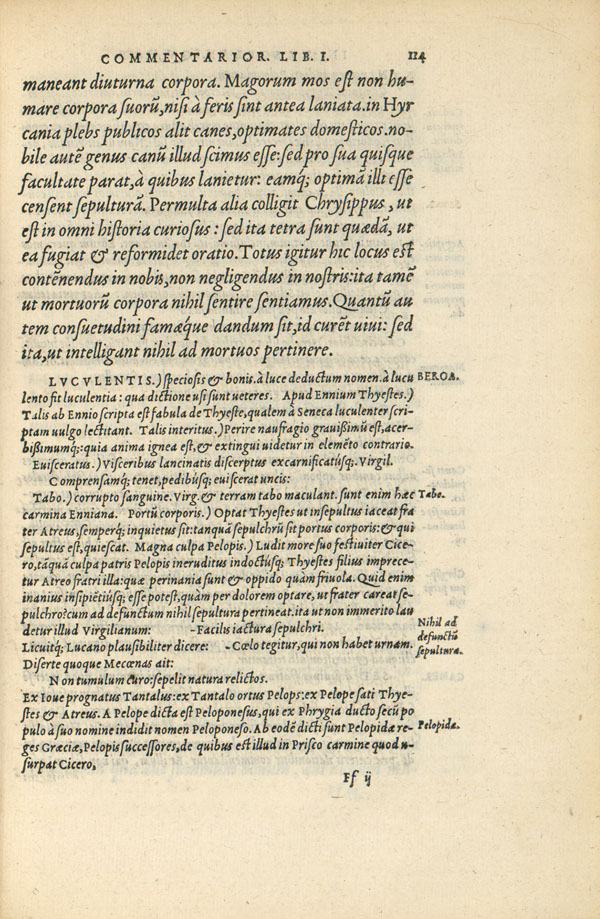 COMMENTARIOR. LIB. I. 114
maneant diuturna corpora. Magorum mos est non hu-
mare corpora suorũ, nisi à feris sint antea laniata. in Hyr
cania plebs publicos alit canes, optimates domesticos. no-
bile autẽ genus canũ illud scimus esse: sed pro sua quisque
facultate parat, à quibus lanietur: eamq; optimã illi esse
censent sepulturã. Permulta alia colligit Chrysippus, ut
est in omni historia curiosus: sed ita tetra sunt quædã, ut
ea fugiat & reformidet oratio. Totus igitur hic locus est
contẽnendus in nobis, non negligendus in nostris: ita tamẽ
ut mortuorũ corpora nihil sentire sentiamus. Quantũ au
tem consuetudini famæq́ue dandum sit, id curẽt uiui: sed
ita, ut intelligant nihil ad mortuos pertinere.
LVCVLENTIS.) speciosis & bonis. à luce deductum nomen. à lucu BEROA.
lento fit luculentia: qua dictione usi sunt ueteres. Apud Ennium Thyestes.)
Talis ab Ennio scripta est fabula de Thyeste, qualem à Seneca luculenter scri-
ptam uulgo lectitant. Talis interitus.) Perire naufragio grauißimũ est, acer-
bißimumq́;: quia anima ignea est, & extingui uidetur in elemẽto contrario.
Euisceratus.) Visceribus lancinatis discerptus excarnificatúsq;. Virgil.
Comprensamq́; tenet, pedibusq́; euiscerat uncis:
Tabo.) corrupto sanguine. Virg. & terram tabo maculant. sunt enim hæc Tabo.
carmina Enniana. Portũ corporis.) Optat Thyestes ut insepultus iaceat fra
ter Atreus, semperq́; inquietus sit: tanquã sepulchrũ sit portus corporis: & qui
sepultus est, quiescat. Magna culpa Pelopis.) Ludit more suo festiuiter Cice-
ro, tãquã culpa patris Pelopis ineruditus indoctúsq; Thyestes filius imprece-
tur Atreo fratri illa: quæ perinania sunt & oppido quàm friuola. Quid enim
inanius insipiẽtiúsq; esse potest, quàm per dolorem optare, ut frater careat se-
pulchro? cum ad defunctum nihil sepultura pertineat. ita ut non immerito lau
detur illud Virgilianum: -Facilis iactura sepulchri.
Nihil ad
defunctũ
sepulturæ.
Licuitq́; Lucano plausibiliter dicere: -Cœlo tegitur, qui non habet urnam.
Diserte quoque Mecœnas ait:
Non tumulum curo: sepelit natura relictos.
Ex Ioue prognatus Tantalus: ex Tantalo ortus Pelops: ex Pelope sati Thye-
stes & Atreus. A Pelope dicta est Peloponesus, qui ex Phrygia ducto secũ po
pulo à suo nomine indidit nomen Peloponeso. Ab eodẽ dicti sunt Pelopidæ re- Pelopidæ.
ges Græciæ, Pelopis successores, de quibus est illud in Prisco carmine quod u-
surpat Cicero,
Ff ij